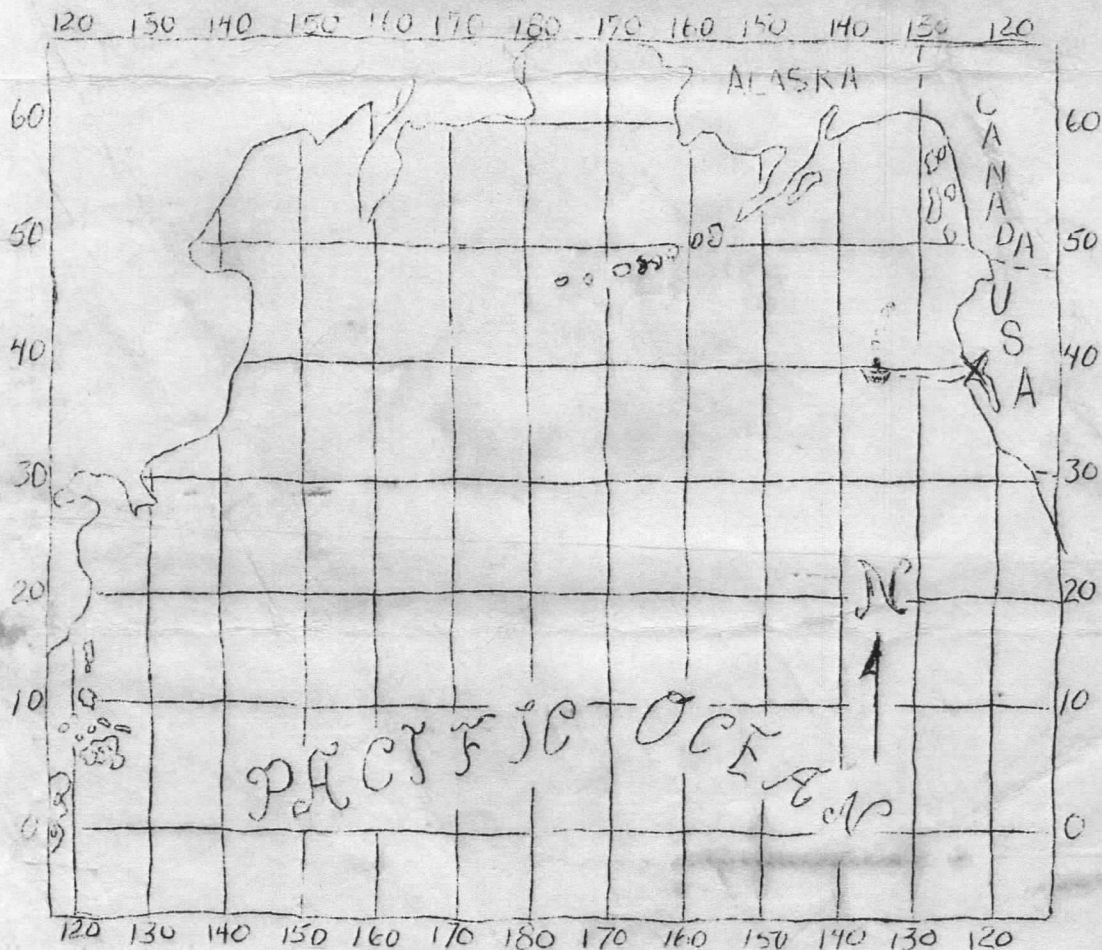 120 130 140 150 160 170 180 170 160 150 140 130 120
ALASKA
CANADA
60 60
50 50
USA
40 40
30 30
20 N 20
10 10
PACIFIC OCEAN
0 0
120 130 140 150 160 170 180 170 160 150 140 130 120